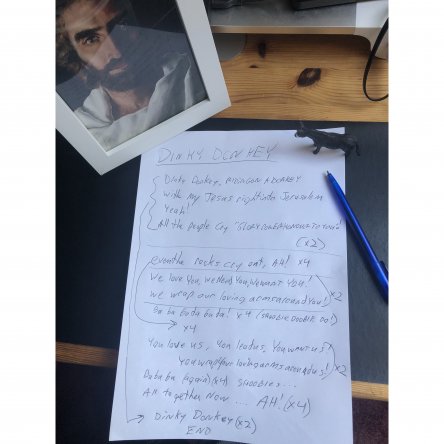 DINKY DONKEY
Dinky Donkey, RIDING ON A DONKEY
With My Jesus right into Jerusalem
Yeah!
All the people Cry "GLORY, POWER, HONOUR TO YOU!"
(x2)
even the rocks cry out, AH! x4
We love You, we Need You, We WANT YOU!
we wrap our loving arms around You! x2
Ba ba ba ba ba! x4 (SHOOBIE DOOBIE DO!)
x4
You love us, You lead us, You want us
You wrap Your loving arms around us! x2
Ba ba ba (again) (x4) SHOOBIES...
All together Now... AH! (x4)
Dinky Donkey (x2)
END